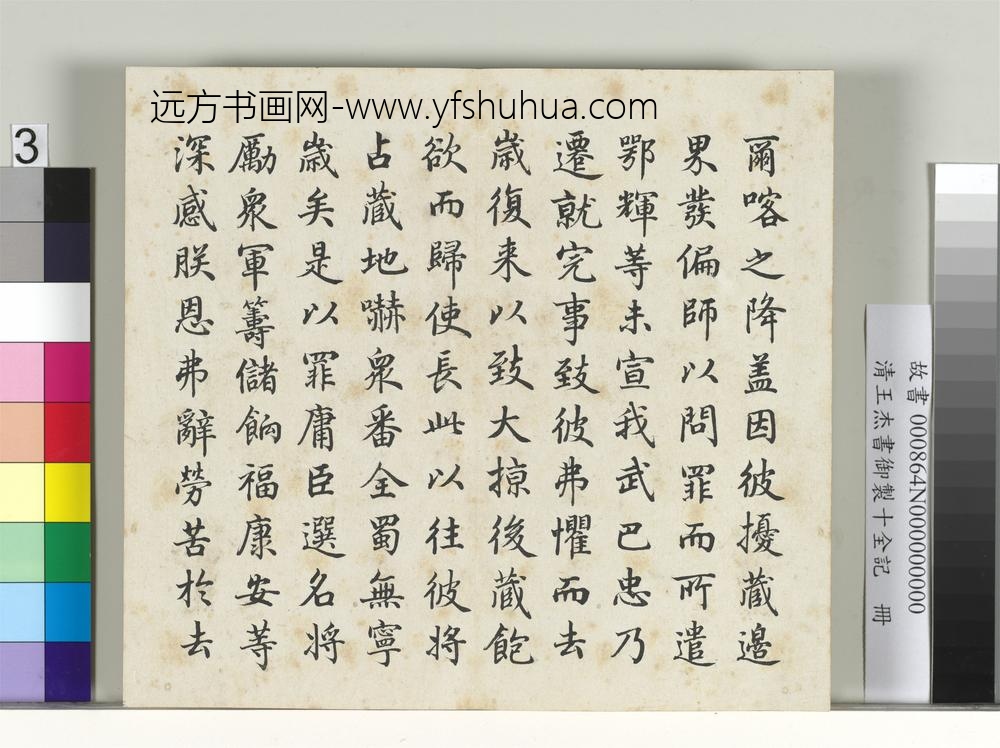 远方书画网-www.yfshuhua.com
3
爾喀之降盖因彼擾藏邊
界發偏師以問罪而所遣
鄂輝等未宣我武巴忠乃
遷就完事致彼弗懼而去
歲復来以致大掠後藏飽
欲而歸使長此以往彼將
占藏地嚇衆番全蜀無寧
歲矣是以罪庸臣選名将
勵衆軍籌儲餉福康安等
深感朕恩弗辭勞苦於去
故書 000864N000000000
清王杰書御製十全記 冊